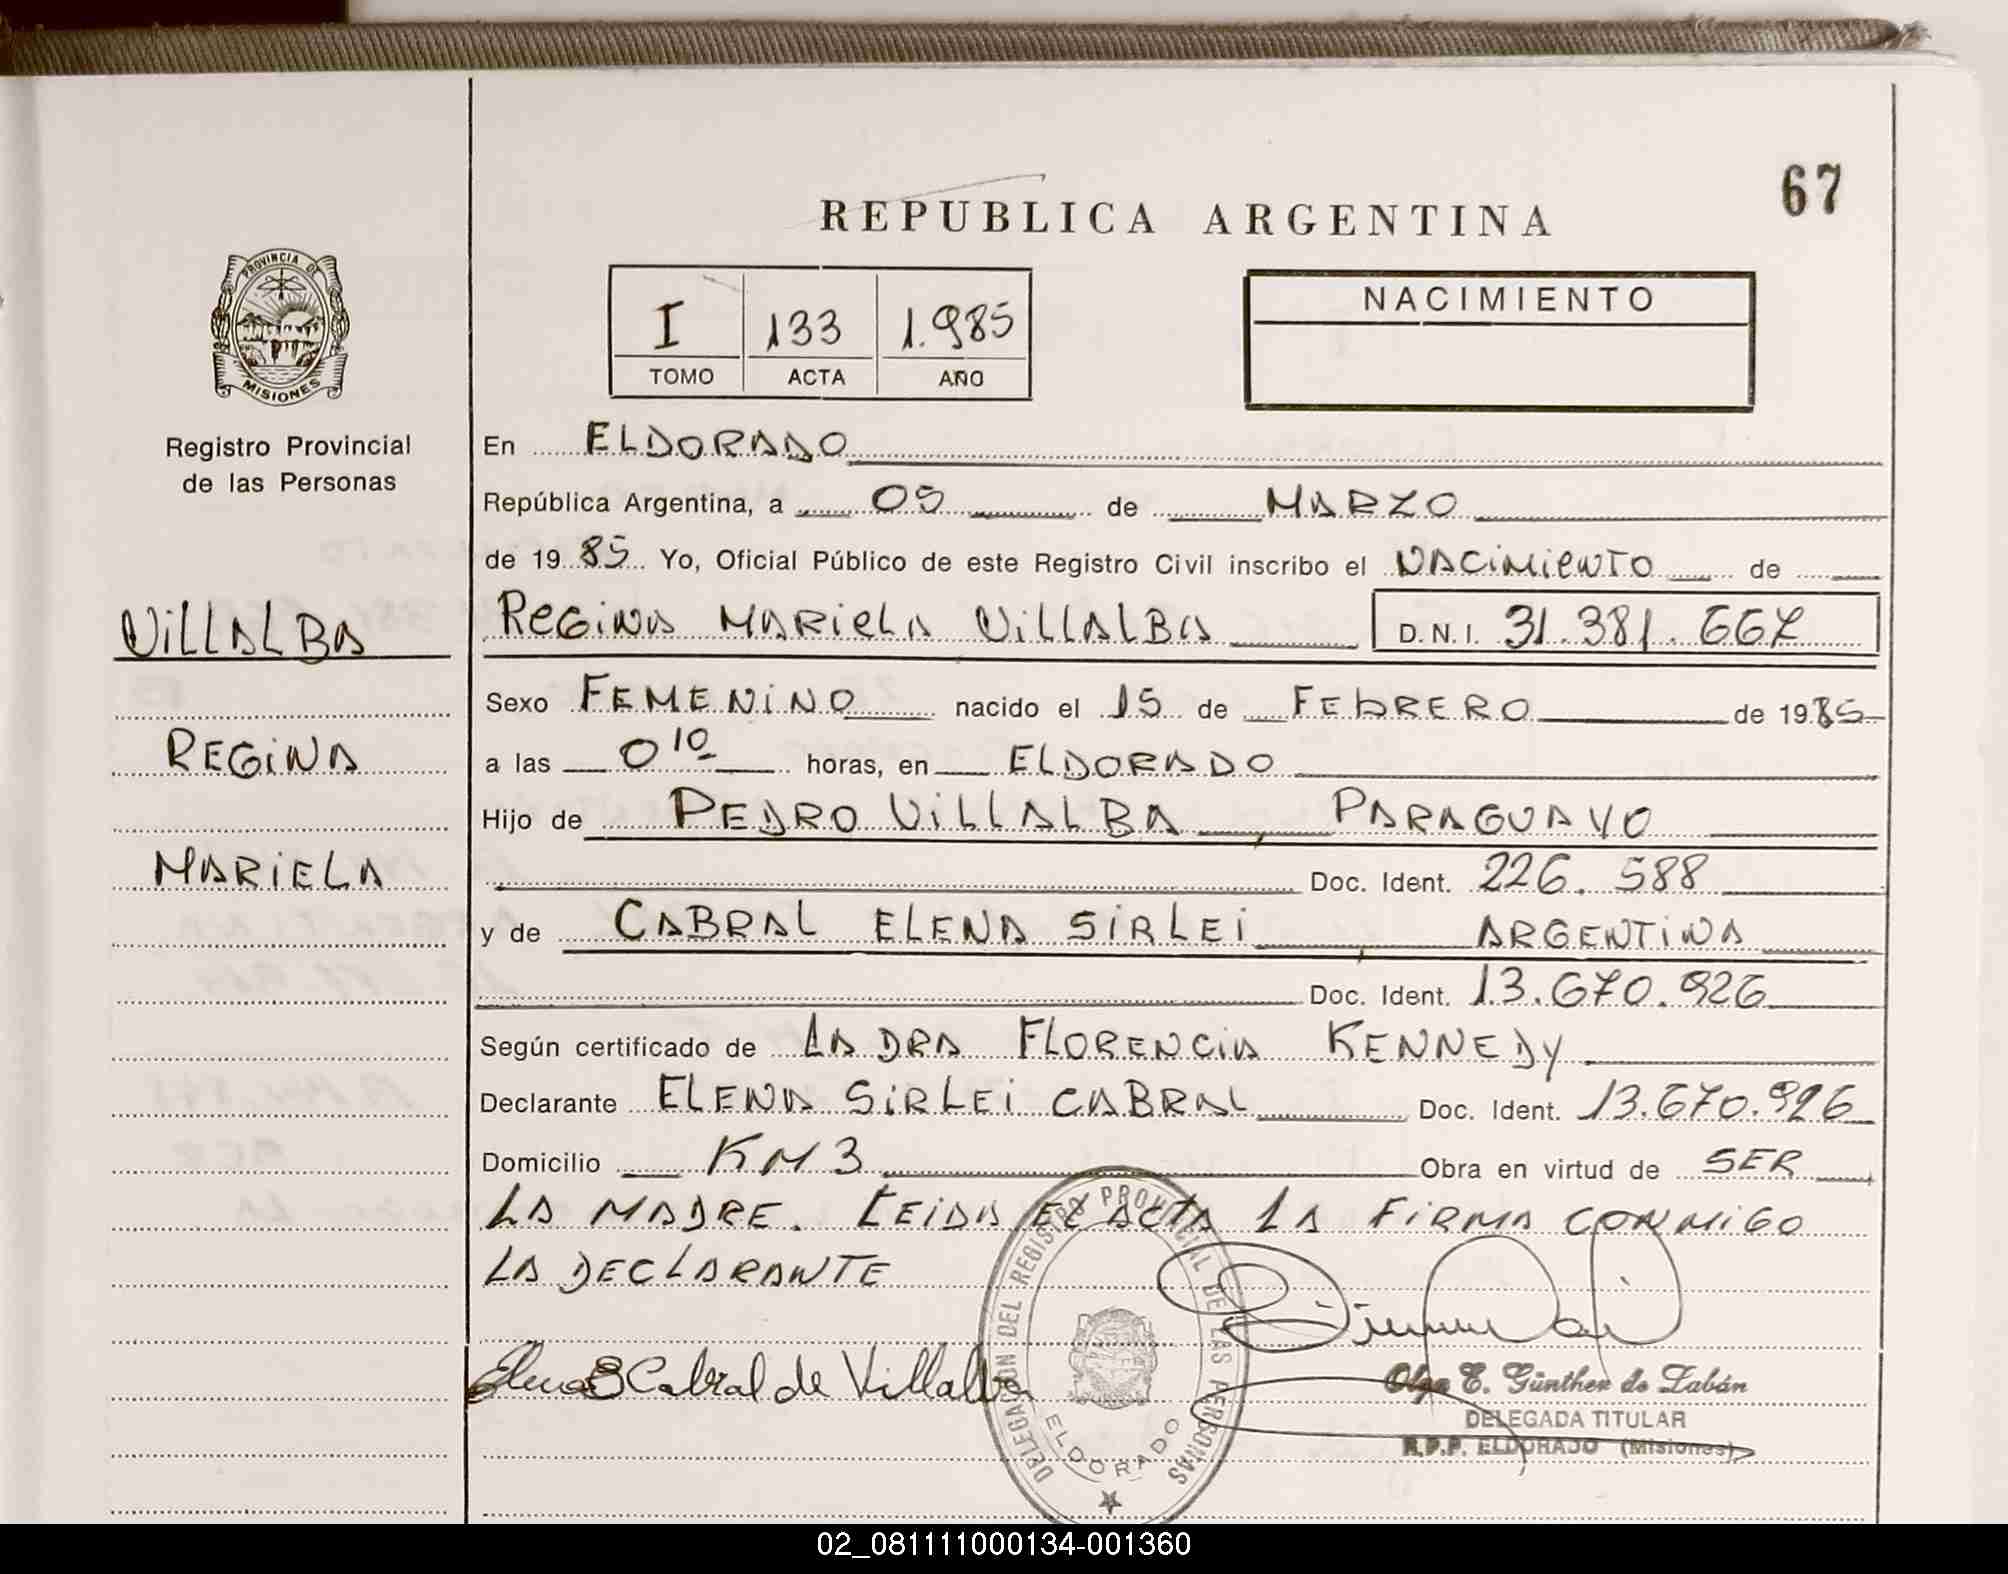 67
REPUBLICA ARGENTINA
PROVINCIA DE
MISIONES
Registro Provincial
de las Personas
I 133 1.985
TOMO ACTA AÑO
NACIMIENTO
En ELDORADO
República Argentina, a 05 de MARZO
de 19 85 Yo, Oficial Público de este Registro Civil inscribo el NACIMIENTO de
VILLALBA
REGINA MARIELA VILLALBA D.N.I. 31.381.667
Sexo FEMENINO nacido el 15 de FEBRERO de 19 85
REGINA
a las 0 10 horas, en ELDORADO
Hijo de PEDRO VILLALBA, PARAGUAYO
MARIELA
Doc. Ident. 226.588
y de CABRAL ELENA SIRLEI, ARGENTINA
Doc. Ident. 13.670.926
Según certificado de LA DRA FLORENCIA KENNEDY
Declarante ELENA SIRLEI CABRAL Doc. Ident. 13.670.926
Domicilio KM 3 Obra en virtud de SER
LA MADRE. LEIDA EL ACTA LA FIRMA CONMIGO
LA DECLARANTE
Elena S Cabral de Villalba
DELEGACION DEL REGISTRO PROVINCIAL DE LAS PERSONAS
ELDORADO
Olga E. Günther de Zabán
DELEGADA TITULAR
R.P.P. ELDORADO (Misiones)
02_081111000134-001360